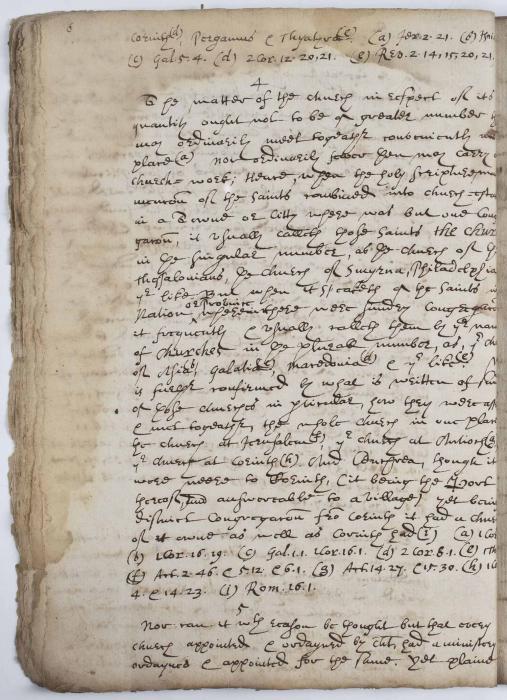 6
Corinth(d) Pergamus & Thyatyra(e). (a) Jer. 2. 21. (b)
(c) Gal. 5. 4. (d) 2 Cor. 12. 20, 21. (e) Rev. 2. 14, 15, 20, 21.
4
The matter of the church in respect of its
quantity ought not to be of greater number
may ordinarily meet togeather conveniently
place(a) nor ordinarily fewer then may carry
church-work; Hence, when the holy scripture
mencion of the Saints combined into church-estate
in a Towne or Citty where was but one Con
gacon, it usually calleth those Saints the Church
in the singular number, as the church of the
Thessalonians the church of Smyrna, Philadelphia
ye like But when it speaketh of the Saints in
Nation or Province wherein there were sundry Congregacons
it frequently & usually calleth them by ye name
of Churches in the plurall number, as, ye
of Asia(b) Galatia(c), Macedonia(d) & ye like(e).
is further confirmed by what is written of
of those churches in pticular, how they were
& mett togeather the whole church in one place
the church at Jerusalem(f) ye church at Antioch(g)
ye church at Corinth(h) And Cenchrea, though it
were neere to Corinth, (it being the Port
thereof, and answereable to a Village) yet being
distinct Congregacon fro Corinth it had a church
of it owne as well as Corinth had(i) (a) 1 Cor
(b) 1 Cor. 16. 19. (c) Gal. 1. 1. 1 Cor. 16. 1. (d) 2 Cor. 8. 1. (e)
(f) Act. 2. 46. & 5. 12. & 6. 1. (g) Act. 14. 27. & 15. 30. (h)
4. & 14. 23. (i) Rom. 16. 1.
5
Nor can it wth reason be thought but that every
church appointed & ordayned by Christ, had a ministery
ordayned & appointed for the same. Yet plaine